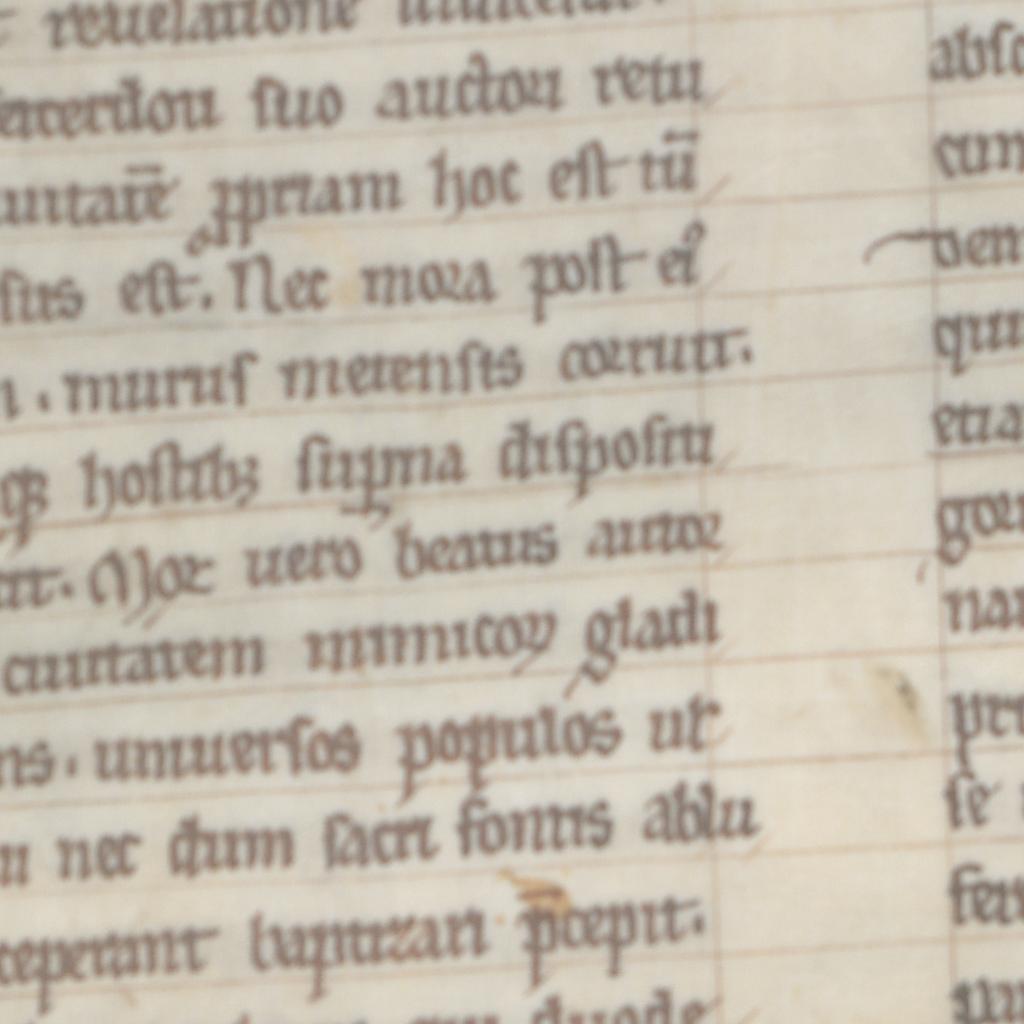 reuelatione
sacerdoti suo auctori reti
ciuitatē ꝓpriam hoc est tū
sus est. Nec mora post ei⁹
murus metensis corruit.
qꝫ hostibꝫ suꝑna dispositi
Mox uero beatus autor
ciuitatem inimicoꝝ gladi
uniuersos populos ut
nec dum sacri fontis ablu
ceperant baptizari p̄cepit.
duode
abso
cum
uen
qui
etia
gori
nar
pri
se
feu